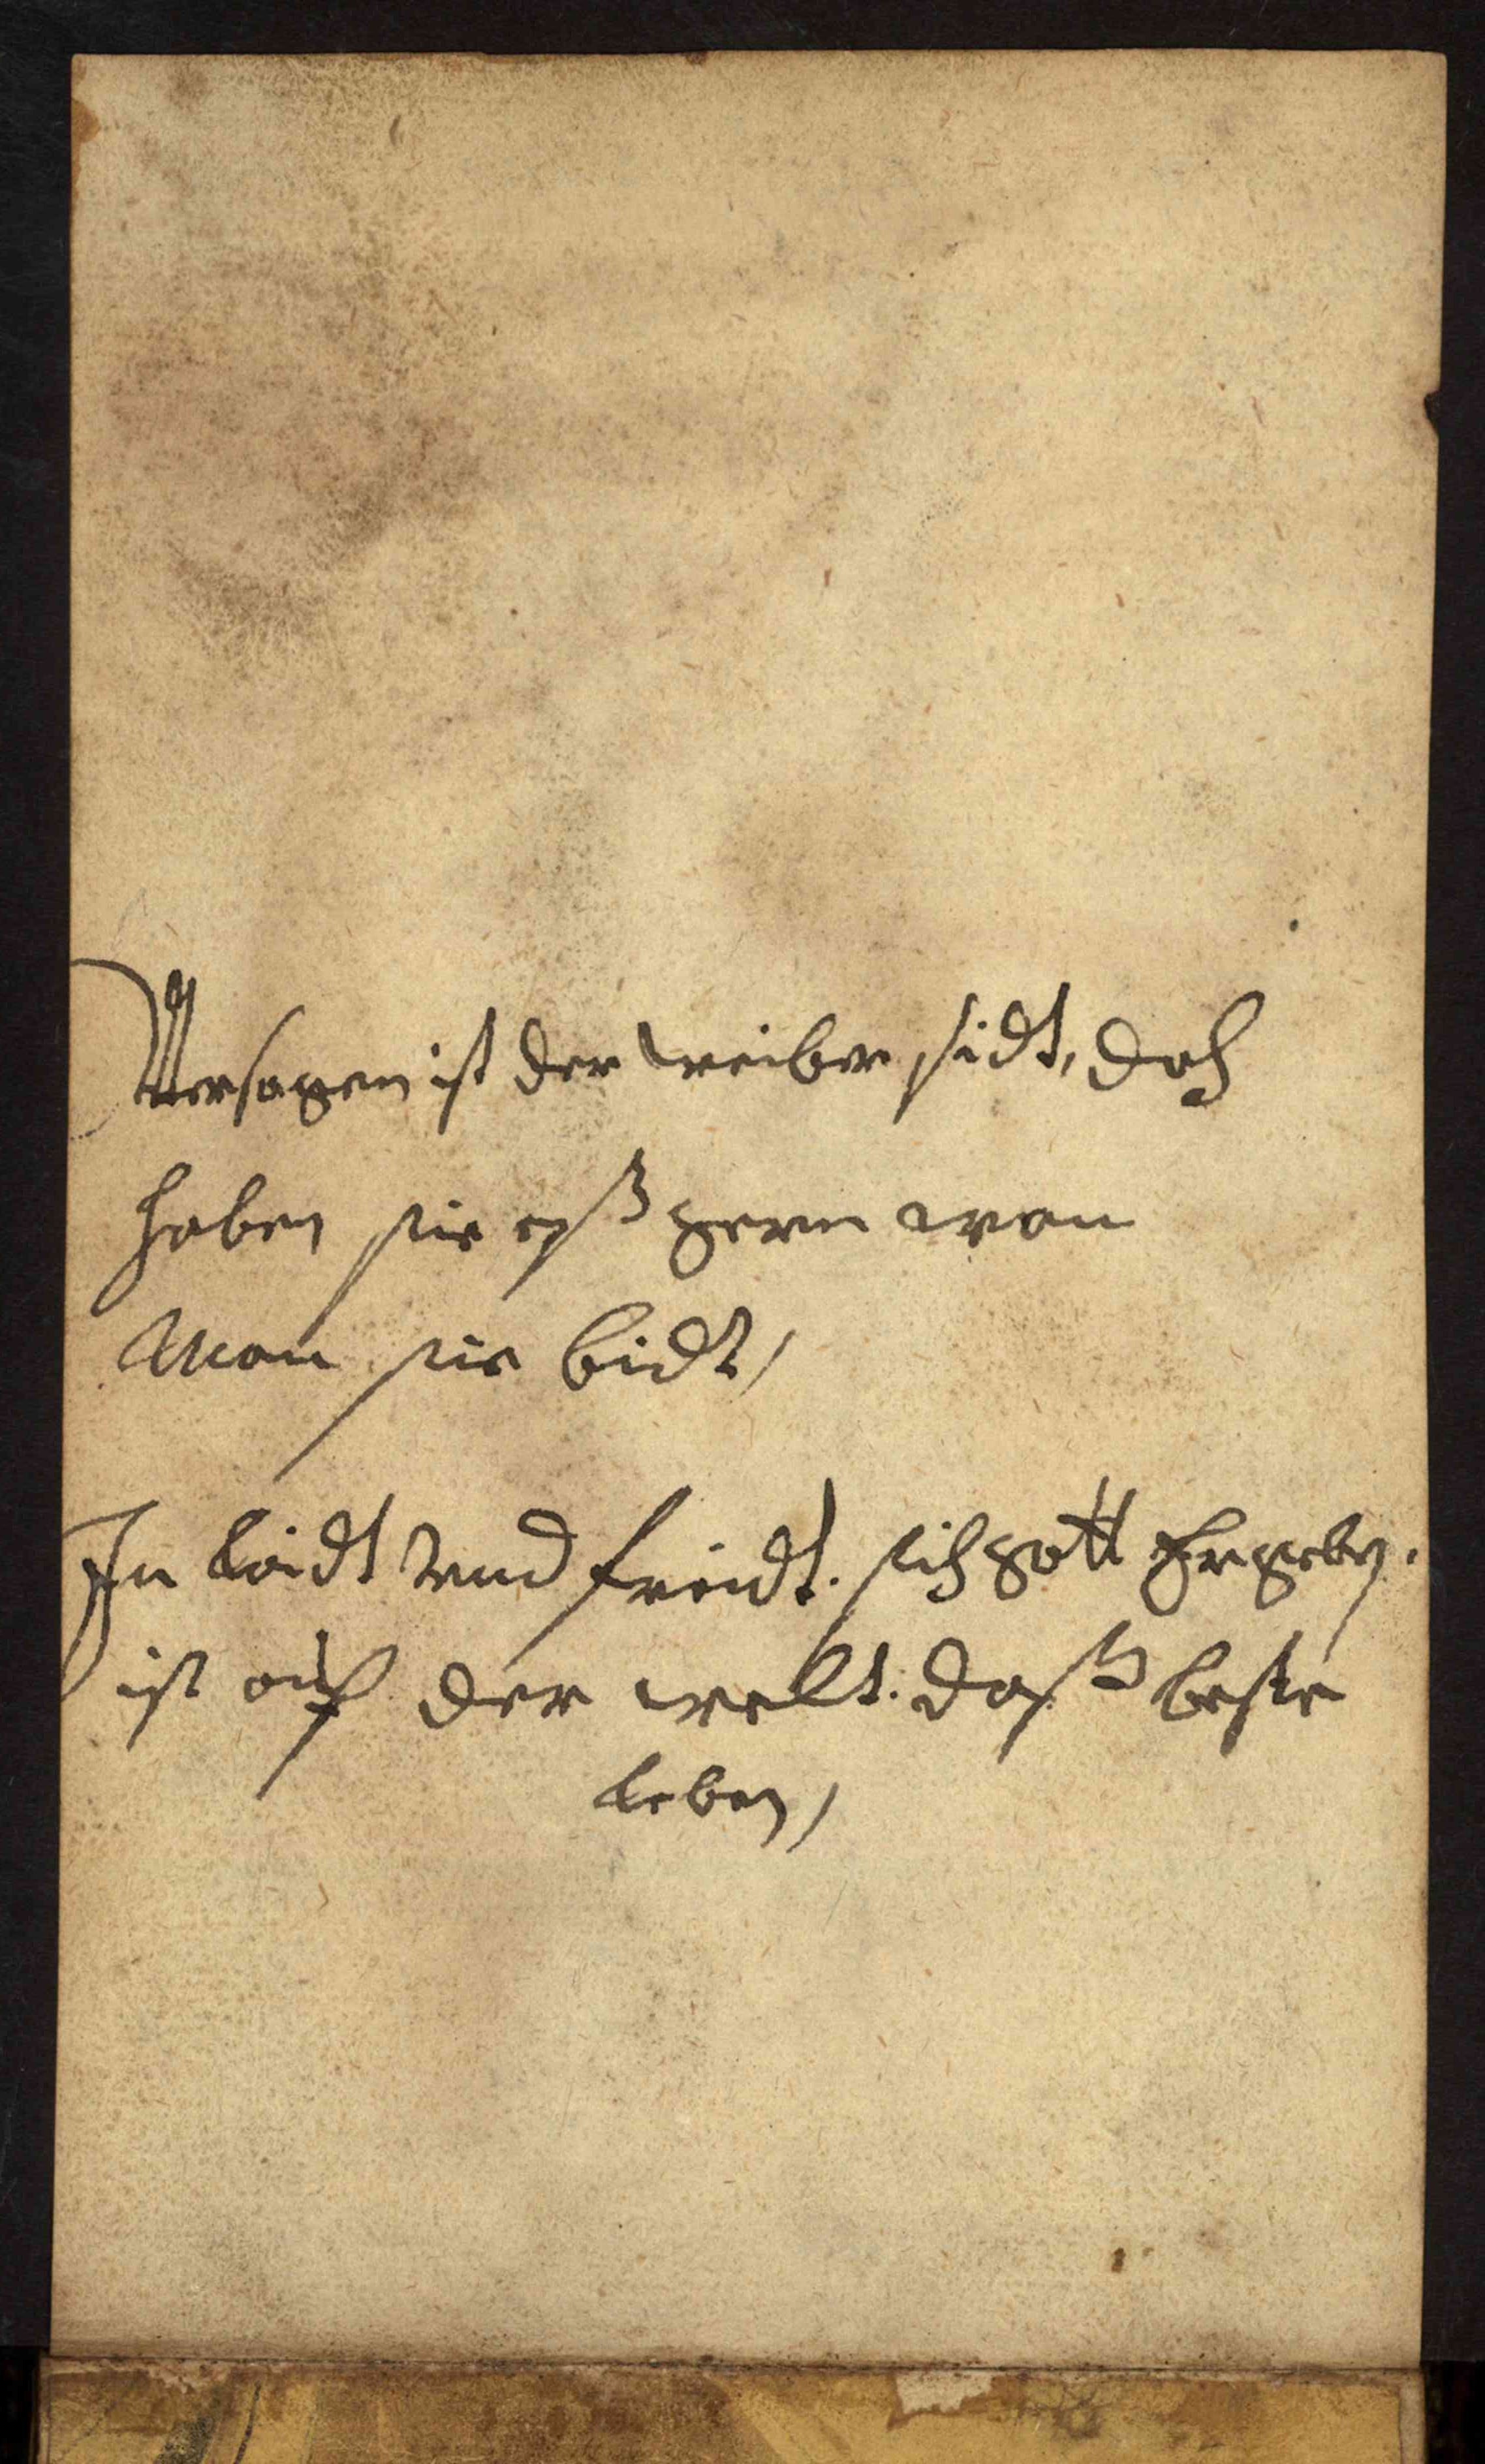 Versagen ist der weiber sidt, doch
haben sie eß gern wan
Man sie bidt,
In laidt vnd freidt. sich gott Ergeben.
ist auf der wellt. daß beste
leben,